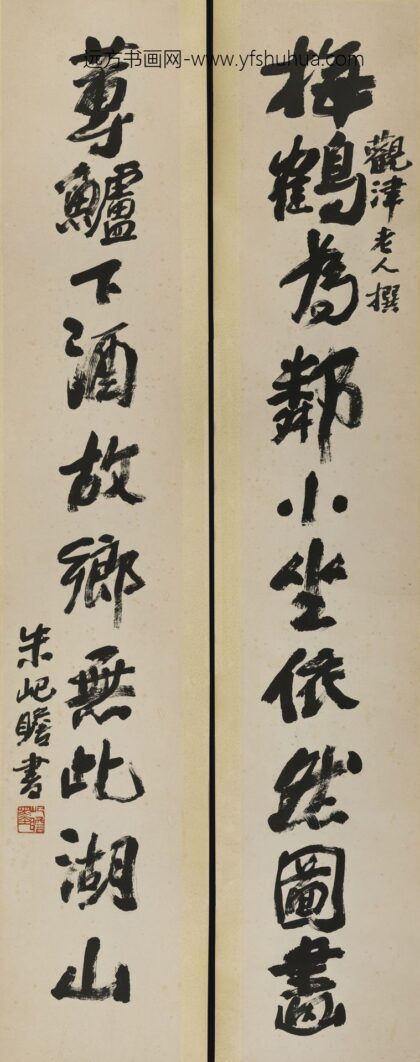 远方书画网-www.yfshuhua.com
觀津老人撰
梅鶴為鄰小坐依然圖畫
蓴鱸下酒故鄉無此湖山
朱屺瞻書